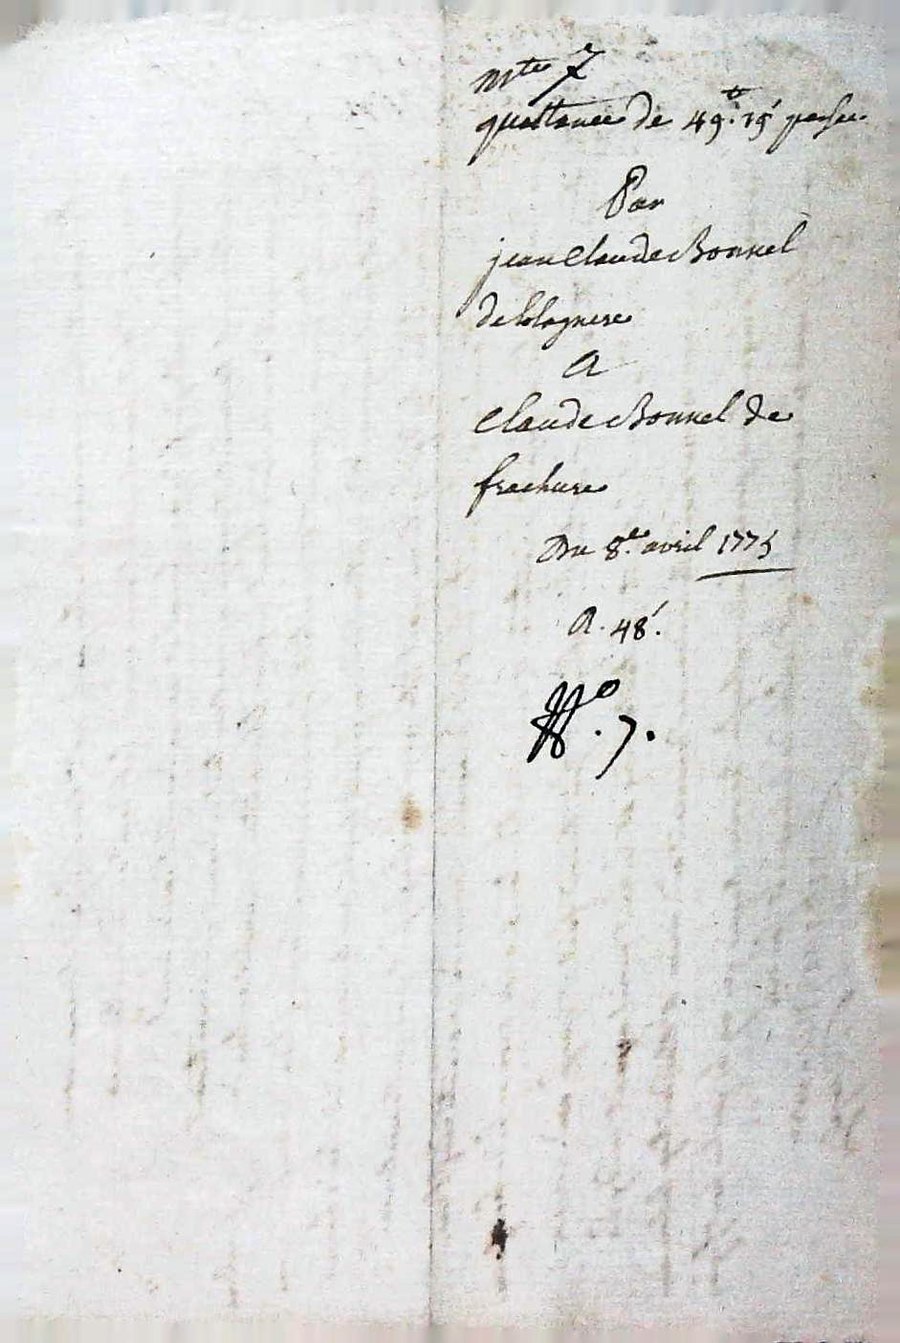 quittance de 49.tt 19.s passée
Par
jean Claude Bonnel
de
A
Claude Bonnel de
frachure
Du 8.e avril 1775
A. 48.s
No. 7.